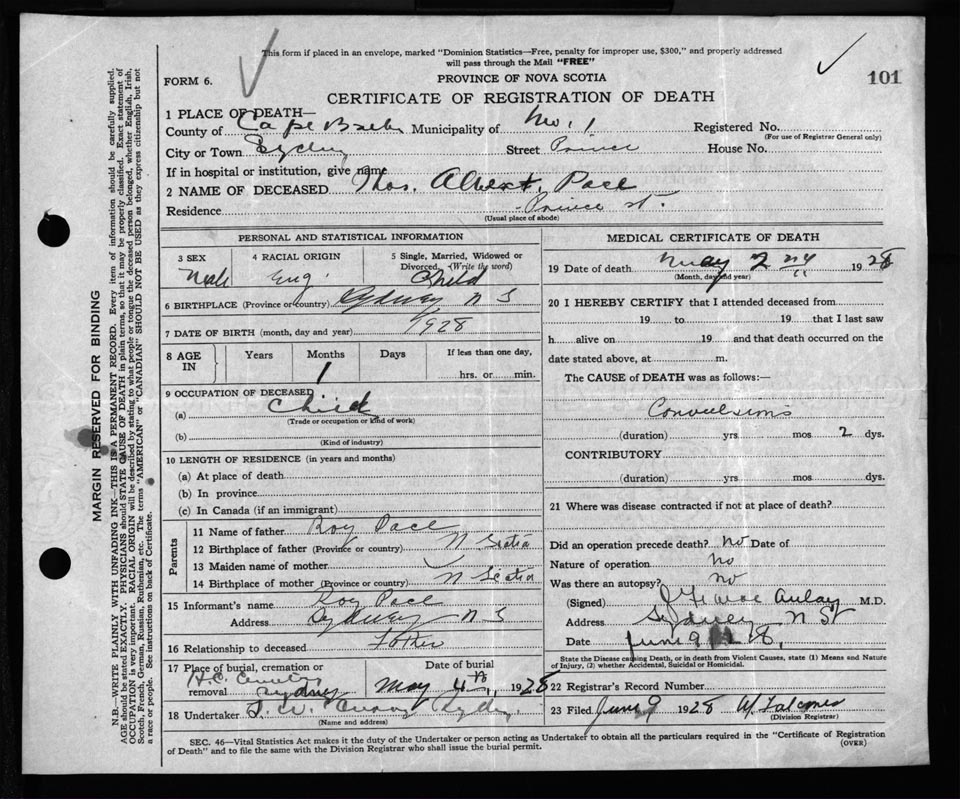 This form if placed in an envelope, marked "Dominion Statistics—Free, penalty for improper use, $300," and properly addressed
will pass through the Mail "FREE"
FORM 6.
PROVINCE OF NOVA SCOTIA
101
CERTIFICATE OF REGISTRATION OF DEATH
1 PLACE OF DEATH—
County of Cape Breton Municipality of No. 1 Registered No.
(For use of Registrar General only)
City or Town Sydney Street Prince House No.
If in hospital or institution, give name
2 NAME OF DECEASED Thos. Albert. Pace
Residence Prince st.
(Usual place of abode)
PERSONAL AND STATISTICAL INFORMATION
3 SEX 4 RACIAL ORIGIN 5 Single, Married, Widowed or
Divorced (Write the word)
Male Eng. Child
6 BIRTHPLACE (Province or country) Sydney N S
7 DATE OF BIRTH (month, day and year) 1928
8 AGE IN Years Months Days If less than one day,
1 hrs. or min.
9 OCCUPATION OF DECEASED
(a) Child
(Trade or occupation or kind of work)
(b)
(Kind of industry)
10 LENGTH OF RESIDENCE (in years and months)
(a) At place of death
(b) In province
(c) In Canada (if an immigrant)
Parents
11 Name of father Roy Pace
12 Birthplace of father (Province or country) N Scotia
13 Maiden name of mother
14 Birthplace of mother (Province or country) N Scotia
15 Informant's name Roy Pace
Address Sydney N S
16 Relationship to deceased Father
17 Place of burial, cremation or Date of burial
removal Sydney May 4th, 1928
18 Undertaker Sydney
(Name and address)
MEDICAL CERTIFICATE OF DEATH
19 Date of death May 2 1928
(Month, day and year)
20 I HEREBY CERTIFY that I attended deceased from
19 to 19 that I last saw
h alive on 19 and that death occurred on the
date stated above, at m.
The CAUSE of DEATH was as follows:—
Convulsions
(duration) yrs mos 2 dys.
CONTRIBUTORY
(duration) yrs mos dys.
21 Where was disease contracted if not at place of death?
Did an operation precede death? No Date of
Nature of operation No
Was there an autopsy? no
(Signed) M.D.
Address Sydney N S
Date June 9 28,
State the Disease causing Death, or in death from Violent Causes, state (1) Means and Nature
of Injury, (2) whether Accidental, Suicidal or Homicidal.
22 Registrar's Record Number
23 Filed June 9 1928
(Division Registrar)
SEC. 46—Vital Statistics Act makes it the duty of the Undertaker or person acting as Undertaker to obtain all the particulars required in the "Certificate of Registration
of Death" and to file the same with the Division Registrar who shall issue the burial permit.
(OVER)
MARGIN RESERVED FOR BINDING
N.B.—WRITE PLAINLY WITH UNFADING INK—THIS IS A PERMANENT RECORD. Every item of information should be carefully supplied.
AGE should be stated EXACTLY. PHYSICIANS should STATE CAUSE OF DEATH in plain terms, so that it may be properly classified. Exact statement of
OCCUPATION is very important. RACIAL ORIGIN will be described by stating to what people or tongue the deceased person belonged, whether English, Irish,
Scotch, French, German, Russian, Ruthenian, etc. The terms "AMERICAN" or "CANADIAN" SHOULD NOT BE USED as they express citizenship but not
a race or people. See instructions on back of Certificate.